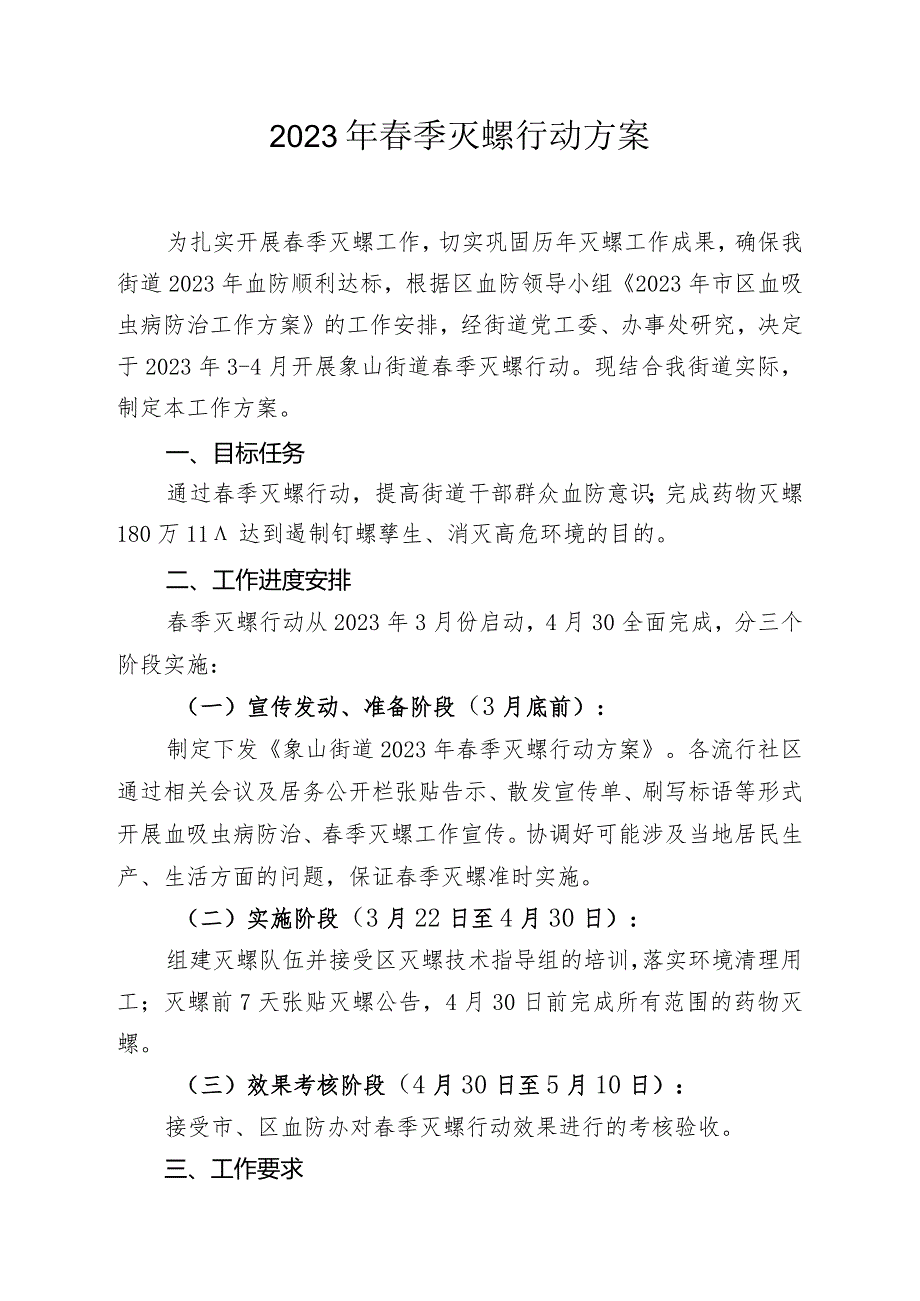 2023年春季灭螺行动方案
为扎实开展春季灭螺工作，切实巩固历年灭螺工作成果，确保我
街道2023年血防顺利达标，根据区血防领导小组《2023年市区血吸
虫病防治工作方案》的工作安排，经街道党工委、办事处研究，决定
于2023年3-4月开展象山街道春季灭螺行动。现结合我街道实际，
制定本工作方案。
一、目标任务
通过春季灭螺行动，提高街道干部群众血防意识；完成药物灭螺
180万11Λ 达到遏制钉螺孳生、消灭高危环境的目的。
二、工作进度安排
春季灭螺行动从2023年3月份启动，4月30全面完成，分三个
阶段实施：
（一）宣传发动、准备阶段（3月底前）：
制定下发《象山街道2023年春季灭螺行动方案》。各流行社区
通过相关会议及居务公开栏张贴告示、散发宣传单、刷写标语等形式
开展血吸虫病防治、春季灭螺工作宣传。协调好可能涉及当地居民生
产、生活方面的问题，保证春季灭螺准时实施。
（二）实施阶段（3月22日至4月30日）：
组建灭螺队伍并接受区灭螺技术指导组的培训，落实环境清理用
工；灭螺前7天张贴灭螺公告，4月30日前完成所有范围的药物灭
螺。
（三）效果考核阶段（4月30日至5月10日）：
接受市、区血防办对春季灭螺行动效果进行的考核验收。
三、工作要求